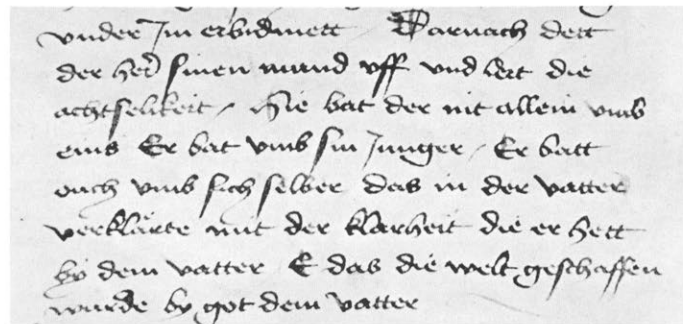 vnder Im erbidmett Darnach dett
der her sinen mund vff vnd lert die
achtselikeit / Hie bat der nit allein vmb
eins Er bat vmb sin Junger / Er batt
ouch vmb sich selber das in der vatter
verklärte mit der klarheit die er hett
by dem vatter E das die welt geschaffen
wurde by got dem vatter